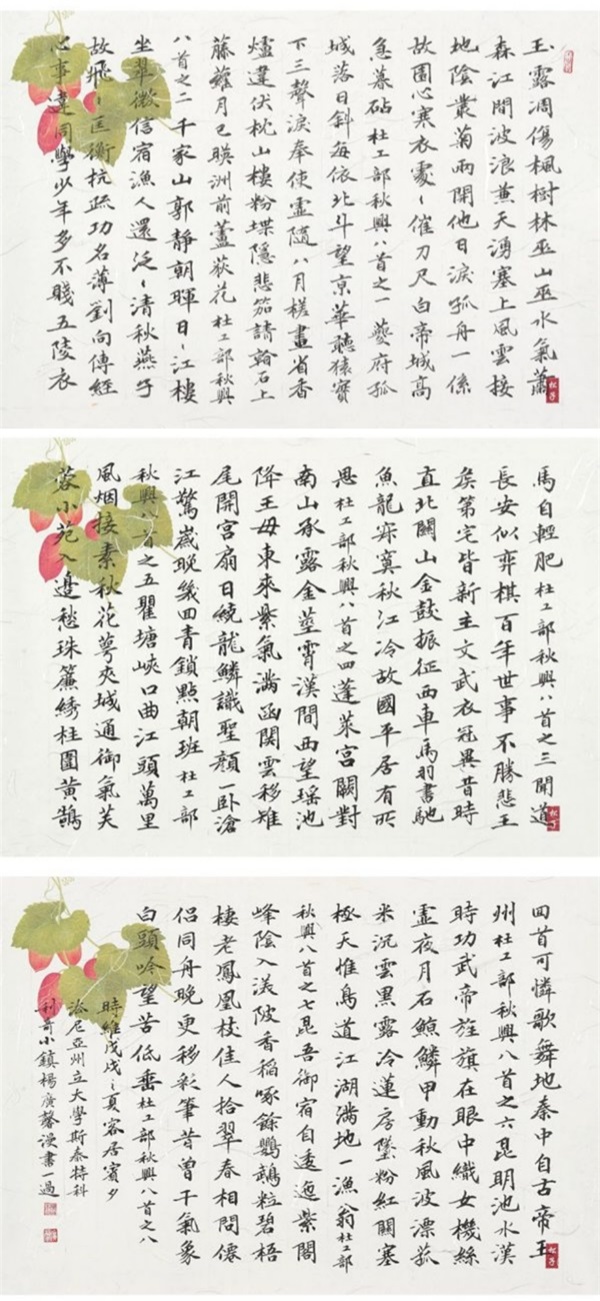 玉露凋傷楓樹林巫山巫水氣蕭
森江間波浪兼天湧塞上風雲接
地陰叢菊兩開他日淚孤舟一係
故園心寒衣處〻催刀尺白帝城高
急暮砧杜工部秋興八首之一夔府孤
城落日斜每依北斗望京華聽猿實
下三聲淚奉使虛隨八月槎畫省香
爐違伏枕山樓粉堞隱悲笳請看石上
藤蘿月已映洲前蘆荻花杜工部秋興
八首之二千家山郭靜朝暉日〻江樓
坐翠微信宿漁人還泛〻清秋燕子
故飛〻匡衡抗疏功名薄劉向傳經
心事違同學少年多不賤五陵衣
馬自輕肥杜工部秋興八首之三聞道
長安似弈棋百年世事不勝悲王
矦第宅皆新主文武衣冠異昔時
直北關山金鼓振征西車馬羽書馳
魚龍寂寞秋江冷故國平居有所
思杜工部秋興八首之四蓬萊宮闕對
南山承露金莖霄漢間西望瑤池
降王母東來紫氣滿函関雲移雉
尾開宮扇日繞龍鱗識聖顏一卧滄
江驚嵗晚幾回青鎖點朝班杜工部
秋興八首之五瞿塘峽口曲江頭萬里
風烟接素秋花萼夾城通御氣芙
蓉小苑入邊愁珠簾綉柱圍黃鵠
回首可憐歌舞地秦中自古帝王
州杜工部秋興八首之六昆明池水漢
時功武帝旌旗在眼中織女機絲
虛夜月石鯨鱗甲動秋風波漂菰
米沉雲黑露冷蓮房墜粉紅關塞
極天惟鳥道江湖滿地一漁翁杜工部
秋興八首之七昆吾御宿自逶迤紫閣
峰陰入渼陂香稻啄餘鸚鵡粒碧梧
棲老鳳凰枝佳人拾翠春相問僊
侶同舟晚更移彩筆昔曾干氣象
白頭吟望苦低垂杜工部秋興八首之八
時維戊戌之夏客居賓夕
法尼亞州立大學斯泰特科
利奇小鎮楊廣馨漫書一過